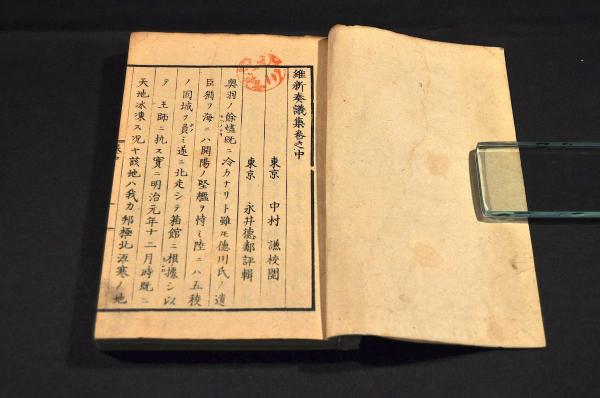 維新奏議集巻之中
東京 中村 謙校閲
東京 永井德鄰評輯
奥羽ノ餘燼既ニ冷カナリト雖モ德川氏ノ遺
臣猶ヲ海ニハ開陽ノ堅艦ヲ恃ミ陸ニハ五稜
ノ固城ヲ負ミ遂ニ北走シテ箱館ニ根據シ以
テ 王師ニ抗ス實ニ明治元年十二月時既ニ
天地氷凍ス况ヤ該地ハ我カ邦極北沍寒ノ地